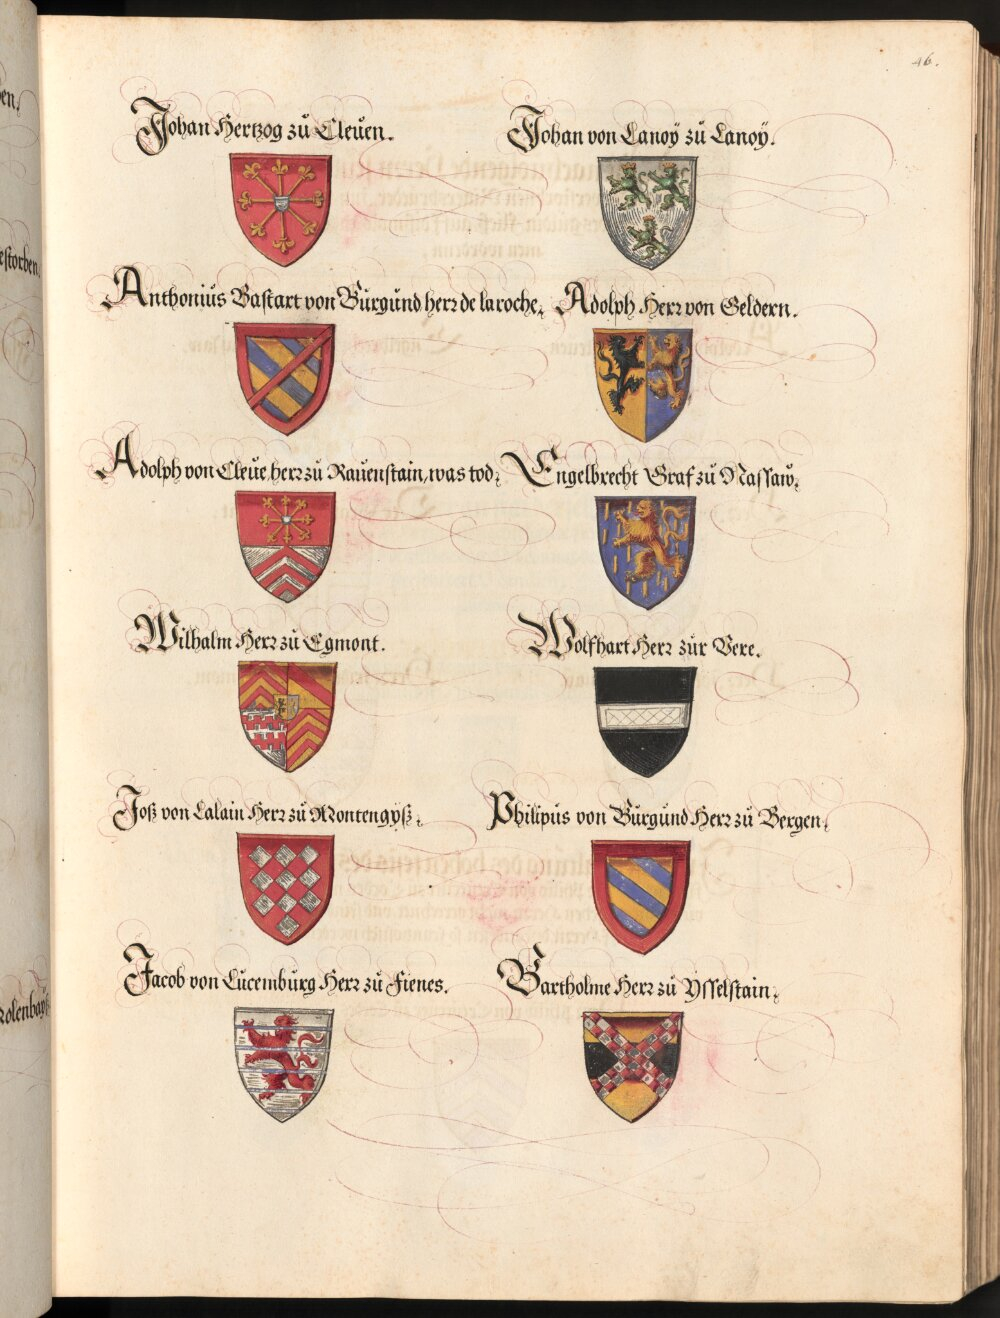 46.
Johan Hertzog zů Cleuen.
Johan von Lanoÿ zů Lanoÿ.
Anthonius Bastart von Burgund herr de laroche,
Adolph Herr von Geldern.
Adolph von Cleue, herr zů Rauenstain, was tod,
Engelbrecht Graf zů Nassaw,
Wilhalm Herr zů Egmont.
Wolfhart Herr zůr Vere.
Joß von Lalain Herr zů Montengyß,
Philipus von Burgund Herr zů Bergen,
Jacob von Lucemburg Herr zů Fienes.
Bartholme Herr zů Ysselstain,